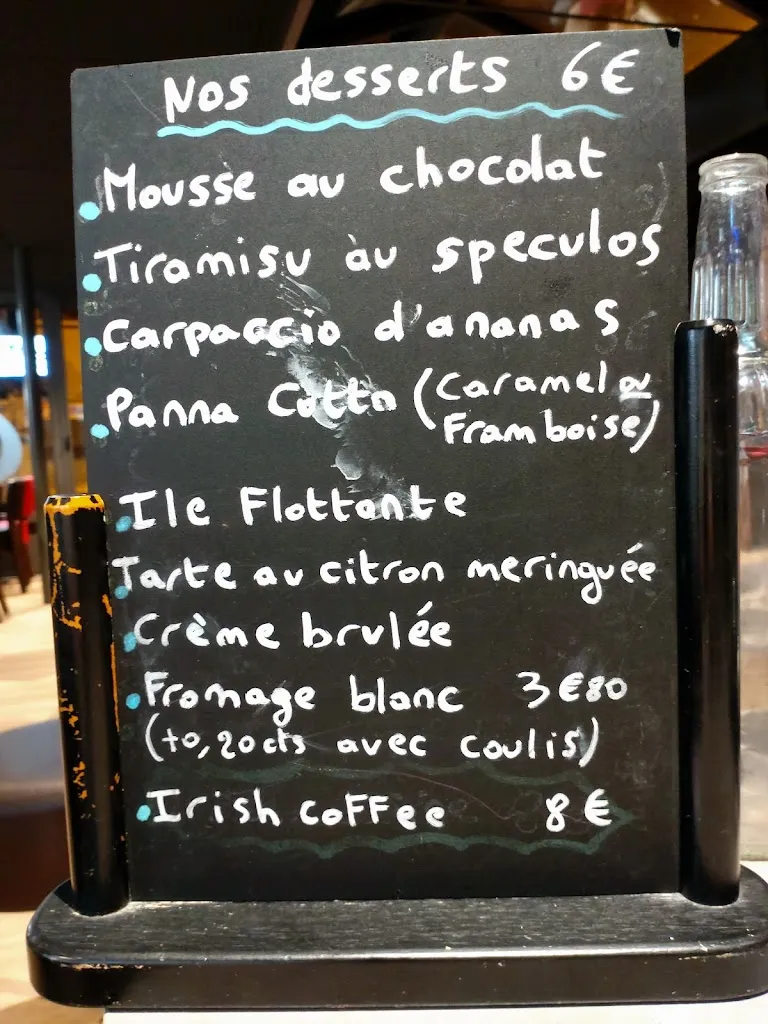 Nos desserts 6€
Mousse au chocolat
Tiramisu àu speculos
Carpaccio d'ananas
Panna Cotta (Caramel ou
Framboise)
Ile Flottante
Tarte au citron meringuée
Crème brulée
Fromage blanc 3€80
(+0,20cts avec coulis)
Irish coffee 8€